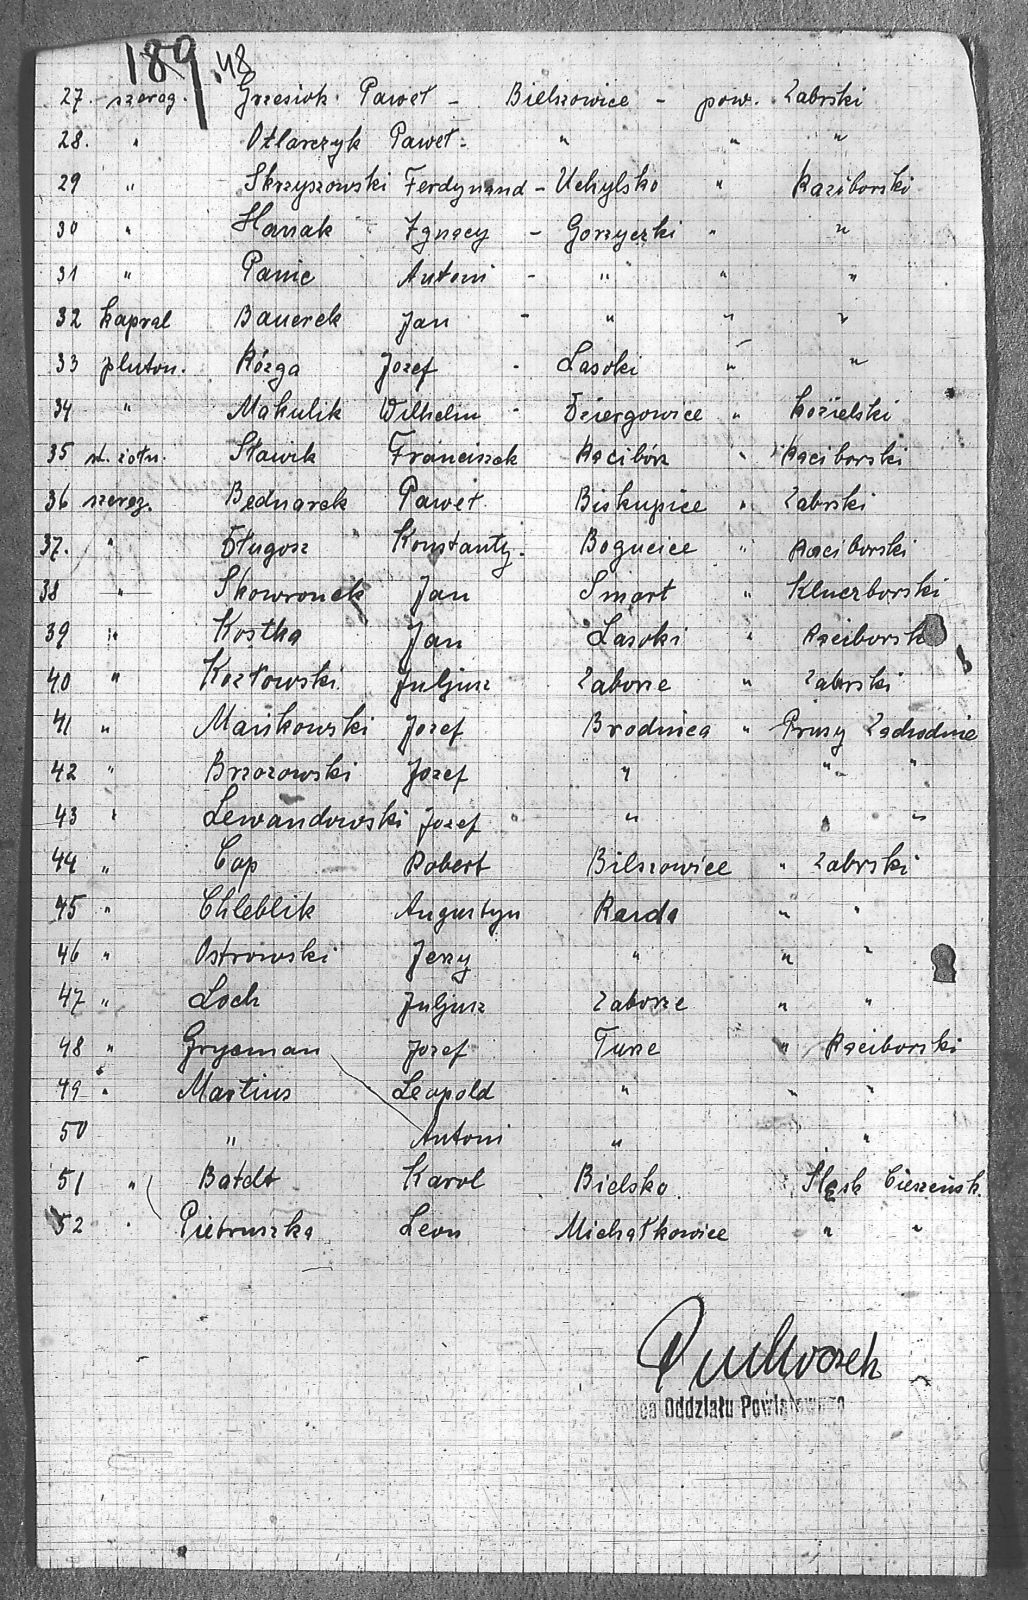 189 48
27. szereg. Grzesiok Paweł - Bielszowice - pow. Zabrski
28. " Otlarczyk Paweł - " " "
29 " Skrzyszowski Ferdynand - Uchylsko " Raciborski
30 " Hanak Ignacy - Gorzyczki " "
31 " Panic Antoni - " " "
32 kapral Bauerek Jan - " " "
33 pluton. Rózga Jozef - Lasoki " "
34 " Makulik Wilhelm - Dziergowice " Kozielski
35 st. żołn. Sławik Franciszek Racibórz " Raciborski
36 szereg. Bednarek Paweł Biskupice " Zabrski
37. " Długosz Konstanty. Bogucice " Raciborski
38 " Skowronek Jan Smart " Kluczborski
39 " Kostka Jan Lasoki " Raciborsk
40 " Kozłowski Juljusz Zaborze " Zabrski
41 " Mańkowski Jozef Brodnica " Prusy Zachodnie
42 " Brzozowski Jozef " " "
43 " Lewandowski Jozef " " "
44 " Cop Robert Bilszowice " Zabrski
45 " Chleblik Augustyn Ruda " "
46 " Ostrowski Jerzy " " "
47 " Loch Juljusz Zaborze " "
48 " Grycman Jozef Turze " Raciborski
49 " Martius Leopold " " "
50 " Antoni " "
51 " Batdt Karol Bielsko Śląsk Cieszeńsk.
52 " Pietruszka Leon Michałkowice " "
Oddziału Powiatowego